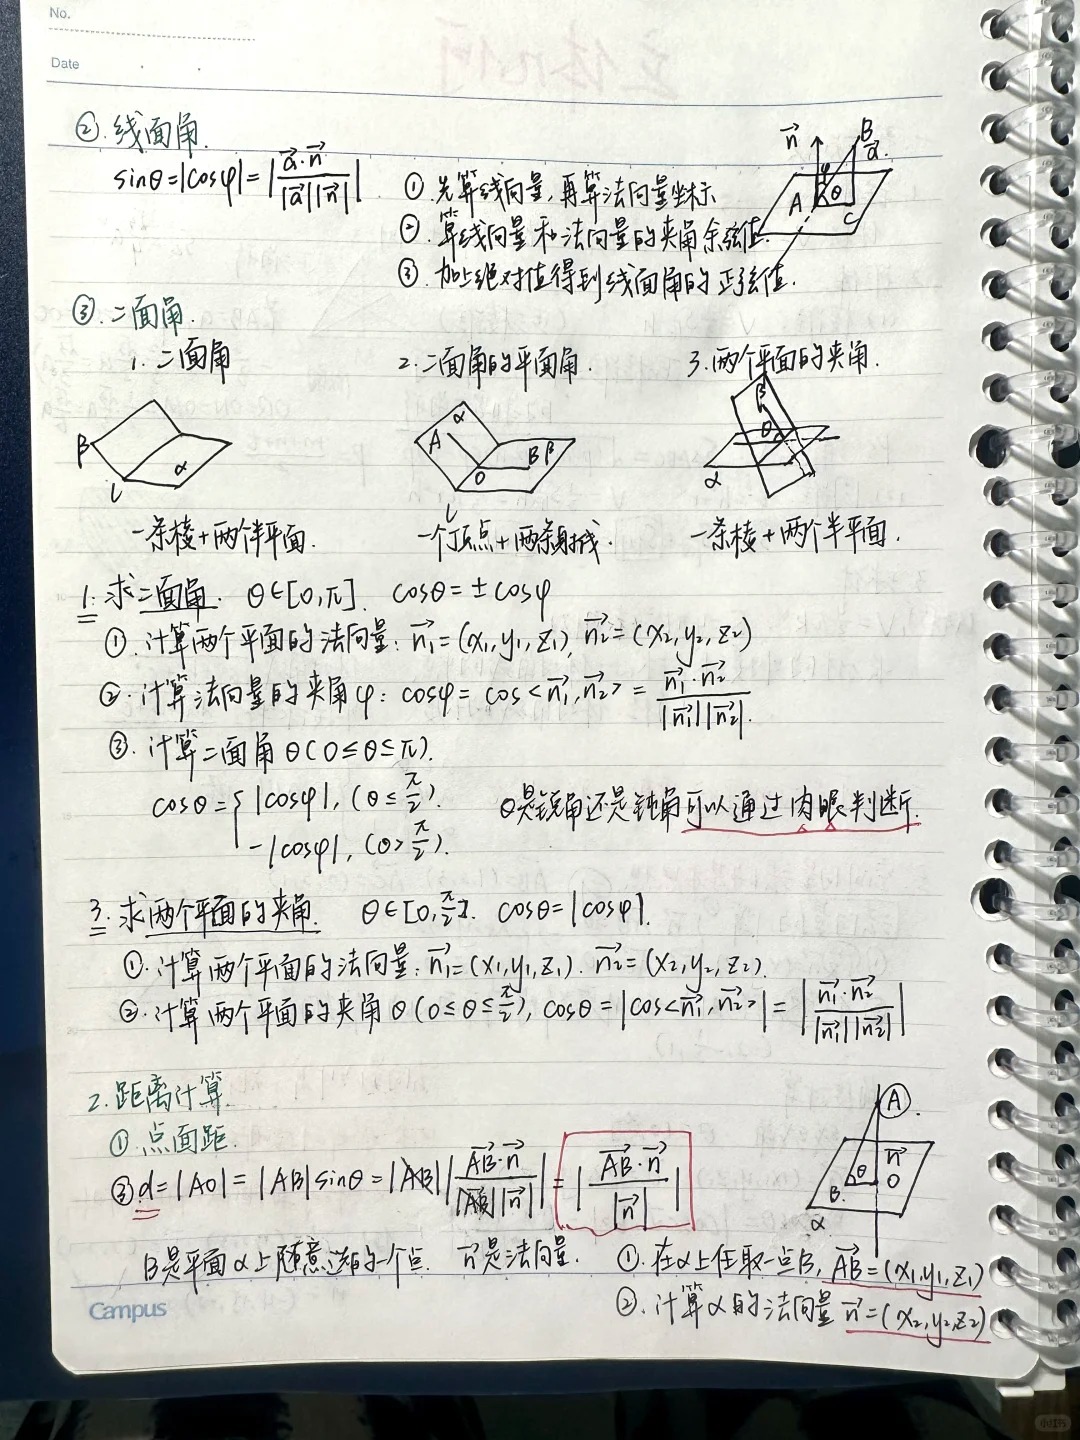 No.
Date
②.线面角.
sinθ=|cosφ|=|a→·n→/|a→||n→||
①.先算线向量,再算法向量坐标
②.算线向量和法向量的夹角余弦值.
③.加上绝对值得到线面角的正弦值.
n→ B a→. A θ C
③.二面角.
1.二面角 2.二面角的平面角. 3.两个平面的夹角.
β α l
A α O B β l
β θ α
一条棱+两个半平面. 一个顶点+两条射线. 一条棱+两个半平面.
1.求二面角. θ∈[0,π]. cosθ=±cosφ
①.计算两个平面的法向量:n₁→=(x₁,y₁,z₁), n₂→=(x₂,y₂,z₂)
②.计算法向量的夹角φ:cosφ=cos<n₁→,n₂→>=n₁→·n₂→/|n₁→||n₂→|.
③.计算二面角θ(0≤θ≤π).
cosθ={|cosφ|,(θ≤π/2).
-|cosφ|,(θ>π/2).
θ是锐角还是钝角可以通过肉眼判断.
3.求两个平面的夹角. θ∈[0,π/2]. cosθ=|cosφ|.
①.计算两个平面的法向量:n₁→=(x₁,y₁,z₁). n₂→=(x₂,y₂,z₂).
②.计算两个平面的夹角θ(0≤θ≤π/2),cosθ=|cos<n₁→,n₂→>|=|n₁→·n₂→/|n₁→||n₂→||
2.距离计算.
①.点面距.
③d=|AO|=|AB|sinθ=|AB||AB→·n→/|AB→||n→||=|AB→·n→/|n→||
A. n→ θ B. O α
B是平面α上随意选的一个点. n→是法向量.
①.在α上任取一点B,AB→=(x₁,y₁,z₁)
②.计算α的法向量n→=(x₂,y₂,z₂)
Campus
小红书